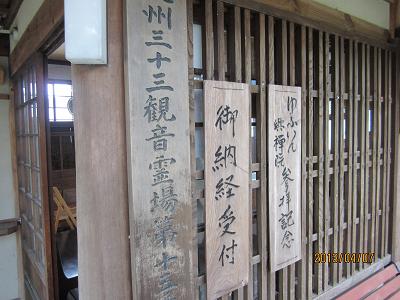 州三十三観音霊場第十
御納経受付
ゆふいん
禅院 参拝記念
2013/04/07